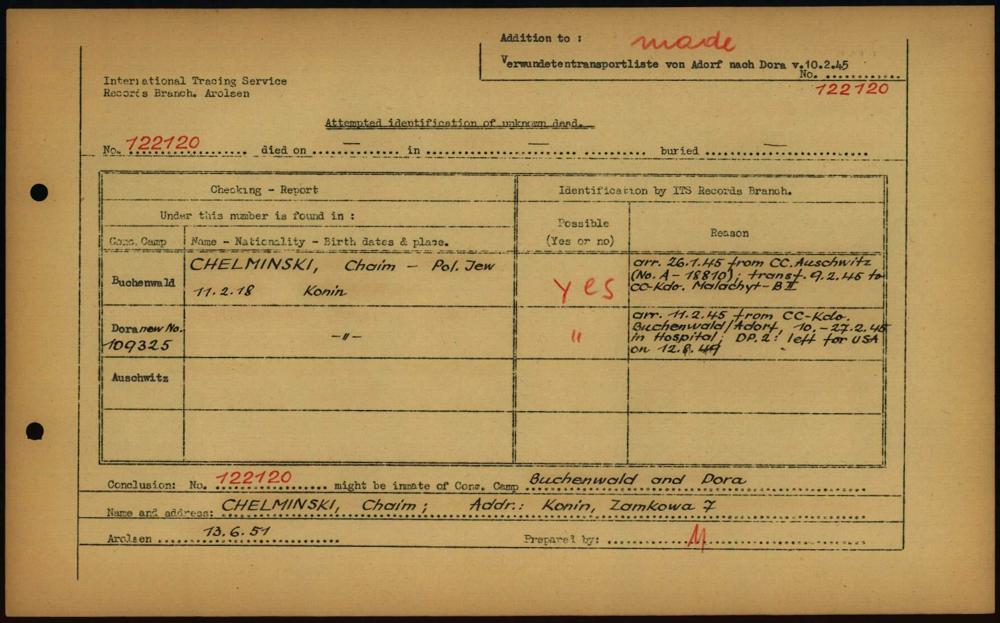 Addition to : made
Verwundetentransportliste von Adorf nach Dora v.10.2.45
No. ............
122120
International Tracing Service
Records Branch. Arolsen
Attempted identification of unknown dead.
No. 122120 died on — in — buried —
Checking - Report
Identification by ITS Records Branch.
Under this number is found in :
Possible
(Yes or no)
Reason
Conc. Camp
Name - Nationality - Birth dates & place.
Buchenwald
CHELMINSKI, Chaim - Pol. Jew
11.2.18 Konin
yes
arr. 26.1.45 from CC. Auschwitz
(No. A - 18810); transf. 9.2.45 to
CC-Kdo. Malachyt - B II
Dora new No.
109325
-"-
"
arr. 11.2.45 from CC-Kdo.
Buchenwald/Adorf, 10.-27.2.45
in Hospital; DP.2: left for USA
on 12.
Auschwitz
Conclusion: No. 122120 might be inmate of Conc. Camp Buchenwald and Dora
Name and address: CHELMINSKI, Chaim; Addr.: Konin, Zamkowa 7
Arolsen 13.6.51 Prepared by: